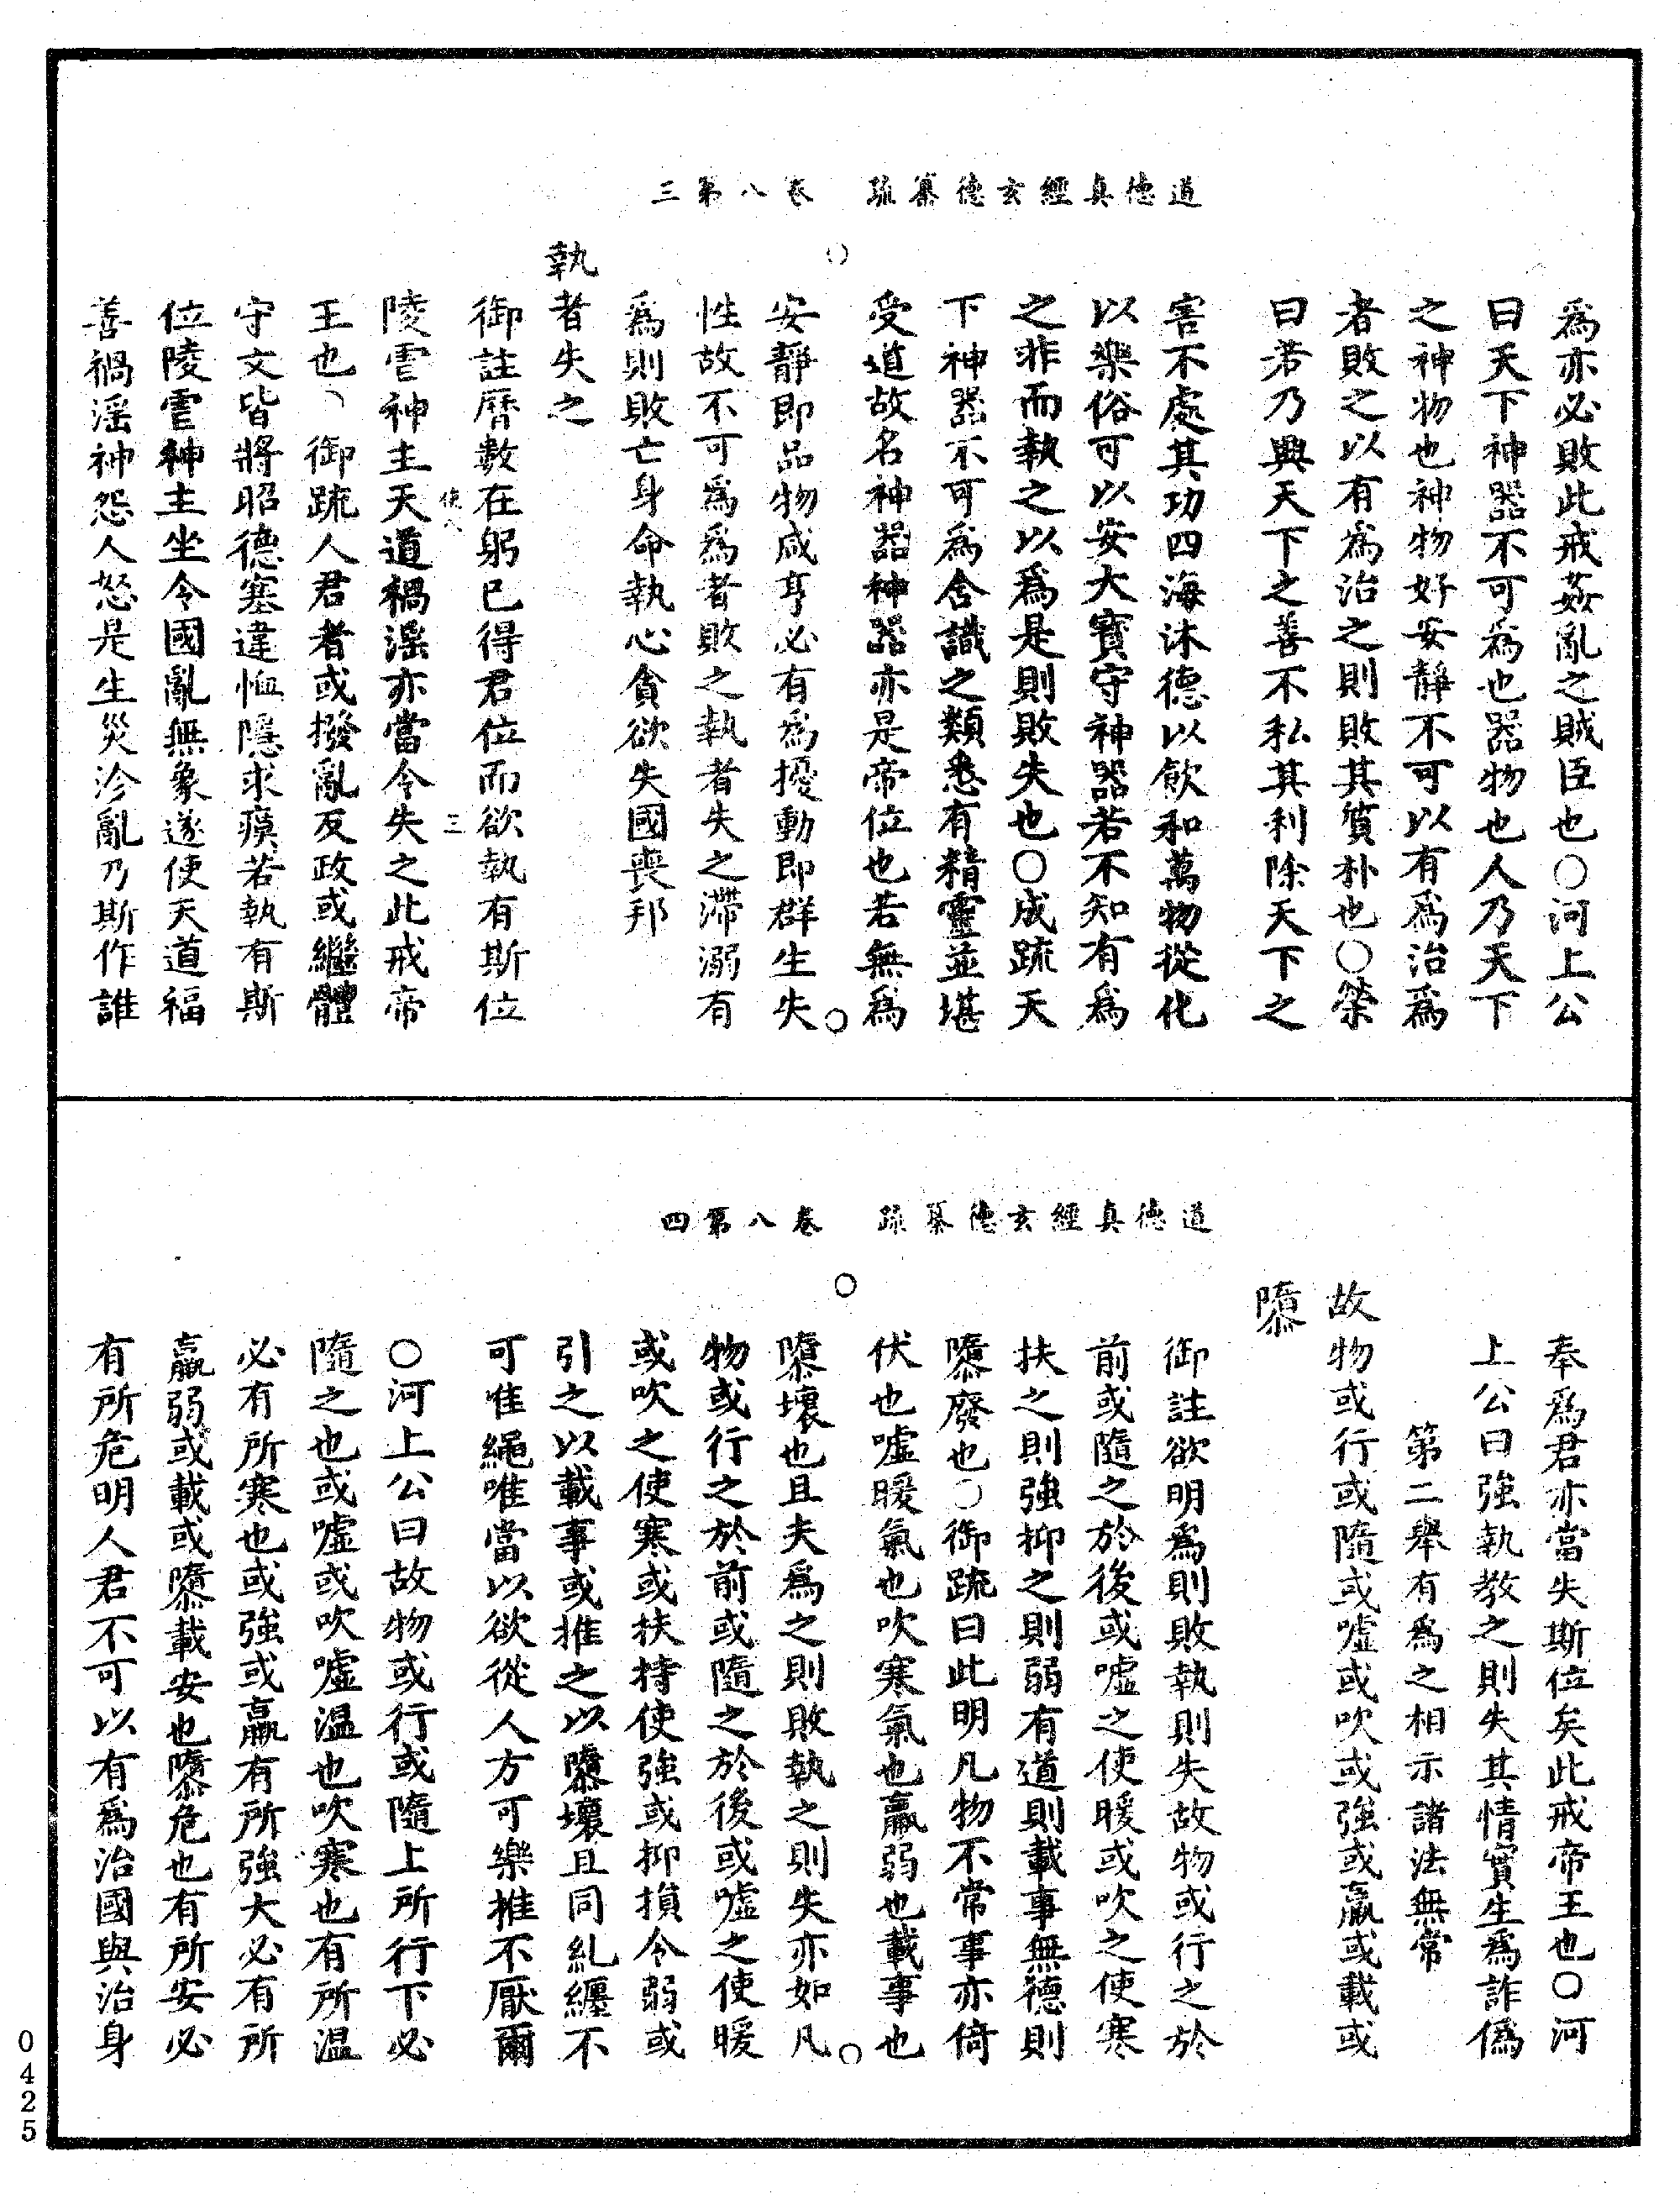 道德真經玄德纂疏　卷八第三
為亦必敗此戒姦亂之賊臣也○河上公
曰天下神器不可為也器物也人乃天下
之神物也神物好安靜不可以有為治為
者敗之以有為治之則敗其質朴也○榮
曰若乃興天下之善不私其利除天下之
害不處其功四海沐德以飲和萬物從化
以樂俗可以安大寶守神器若不知有為
之非而執之以為是則敗失也○成疏天
下神器不可為含識之類悉有精靈並堪
受道故名神器神器亦是帝位也若無為
安靜即品物咸亨必有為擾動即群生失
性故不可為為者敗之執者失之滯溺有
為則敗亡身命執心貪欲失國喪邦
執者失之
御註曆數在躬已得君位而欲執有斯位
使八　三
陵虐神主天道禍淫亦當令失之此戒帝
王也○御疏人君者或撥亂反政或繼體
守文皆將昭德塞違恤隱求瘼若執有斯
位陵虐神主坐令國亂無象遂使天道福
善禍淫神怨人怒是生災沴亂乃斯作誰
道德真經玄德纂疏　卷八第四
奉為君亦當失斯位矣此戒帝王也○河
上公曰強執教之則失其情實生為詐偽
第二舉有為之相示諸法無常
故物或行或隨或噓或吹或強或羸或載或
隳
御註欲明為則敗執則失故物或行之於
前或隨之於後或噓之使暖或吹之使寒
扶之則強抑之則弱有道則載事無德則
隳廢也○御疏曰此明凡物不常事亦倚
伏也噓暖氣也吹寒氣也羸弱也載事也
隳壞也且夫為之則敗執之則失亦如凡
物或行之於前或隨之於後或噓之使暖
或吹之使寒或扶持使強或抑損令弱或
引之以載事或推之以隳壞且同糺纏不
可准繩唯當以欲從人方可樂推不厭爾
○河上公曰故物或行或隨上所行下必
隨之也或噓或吹噓溫也吹寒也有所溫
必有所寒也或強或羸有所強大必有所
羸弱或載或隳載安也隳危也有所安必
有所危明人君不可以有為治國與治身
0425